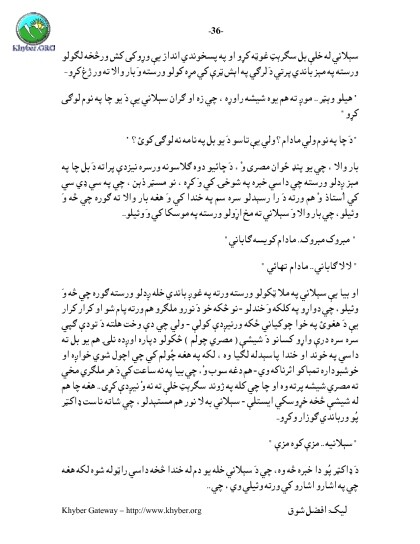 -36-
Khyber.ORG
سپلانې له خلې بل سګرېټ غوټه کړو او په پسخوندي انداز يې وړوکی کش ورڅخه لګولو
ورسته په مېز باندې پرتې دَ لرګي په اېش ټرې کې مړه کولو ورسته وَ بار والا ته ورژغ کړو-
" هيلو ويټر.. موږ ته هم يوه شيشه راوړه ، چې زه او ګران سپلانې يې دَ يو چا په نوم لوګی
کړو "
" دَ چا په نوم ولې مادام ؟ ولې يې تاسو دَ يو بل په نامه نه لوګی کوئ ؟ "
بار والا ، چې يو پنډ ځوان مصری وُ ، دَ چائيو دوه ګلاسونه ورسره نيزدې پراته دَ بل چا په
مېز ږدلو ورسته چې داسې خبره په شوخۍ کې وَ کړه ، نو مسټر ذبن ، چې په سي ډي سي
کې اُستاذ وُ هم ورته دَ را رسېدلو سره سم په خندا کې وَ هغه بار والا ته ګوره چې څه وَ
وئيلو ، چې بار والا وَ سپلانې ته مخ اړولو ورسته په موسکا کې وَ وئيلو..
" مبروک مبروک.. مادام کويسه ګاباني "
" لالا ګاباني.. مادام تهائي "
او بيا يې سپلانې په ملا ټکولو ورسته ورته په غوږ باندې خله ږدلو ورسته ګوره چې څه وَ
وئيلو ، چې دواړو په کلکه وَ خندلو - نو څکه خو دَ نورو ملګرو هم ورته پام شو او کرار کرار
يې دَ هغوئ په خوا چوکيانې څکه ورنيږدې کولې - ولې چې دې وخت هلته دَ تودې ګپې
سره سره درې واړو کسانو دَ شيشې ( مصري چولم ) څکولو دپاره اوږده نلۍ هم يو بل ته
داسې په خوند او خندا پاسېدله لګيا وه ، لکه په هغه چُولم کې چې اچول شوي خواږه او
خوشبوداره تمباکو اثرناکه وي - هم دغه سبب وُ ، چې بيا په نه ساعت کې دَ هر ملګري مخې
ته مصري شيشه پرته وه او چا چې کله په ژوند سګرېټ خلې ته نه وُ نيږدې کړی.. هغه چا هم
له شيشې څخه خړوسکې ايستلې - سپلانې به لا نور هم مستېدلو ، چې شاته ناست ډاکټر
پُو ورباندې ګوزار وکړو..
" سپلانيه.. مزې کوه مزې "
دَ ډاکټر پُو دا خبره څه وه، چې دَ سپلانې خله يو دم له خندا څخه داسې راټوله شوه لکه هغه
چې په اشارو اشارو کې ورته وئيلي وي ، چې..
Khyber Gateway – http://www.khyber.org
ليک: افضل شوق